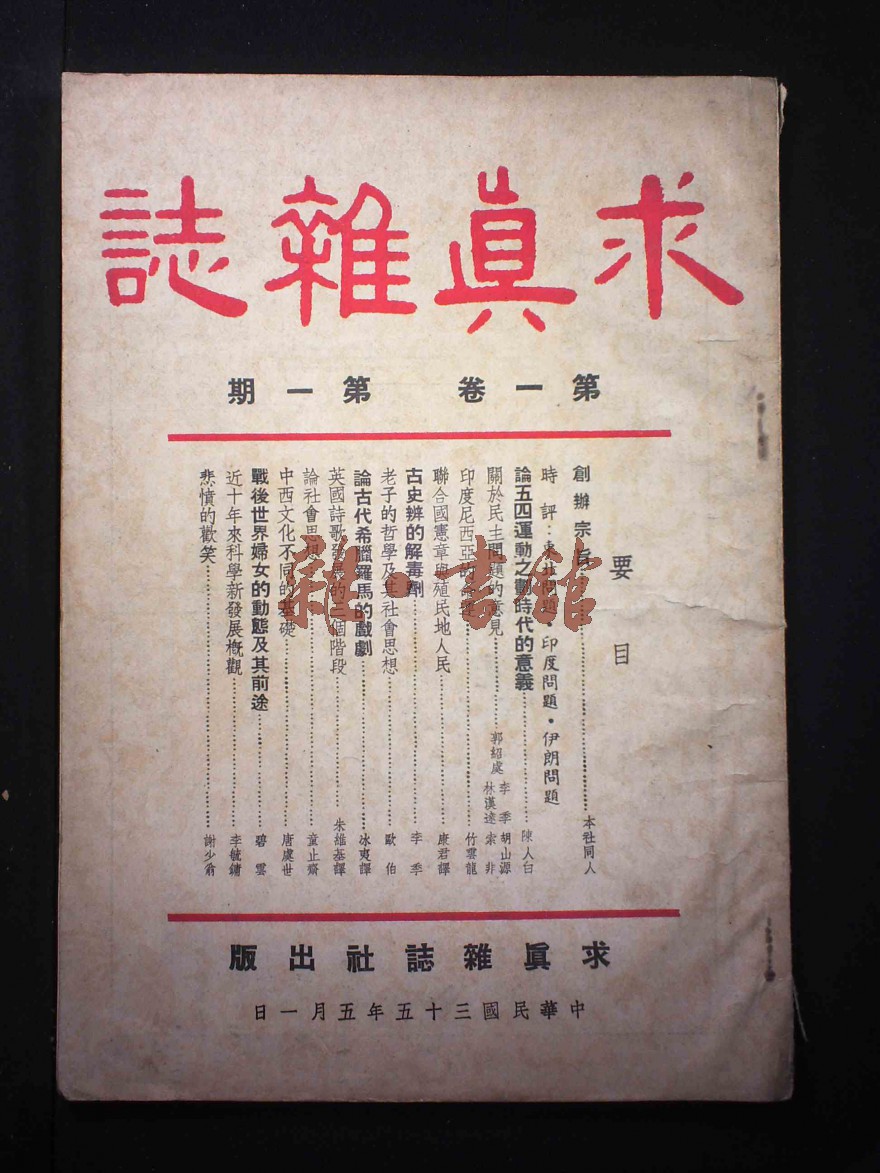 求眞雜誌
第一卷 第一期
要目
創辦宗旨……本社同人
時評：東北問題・印度問題・伊朗問題
論五四運動之劃時代的意義……陳人白
關於民主問題的意見……郭紹虞 李季 胡山源 林漢達 索非
印度尼西亞的……竹雲龍
聯合國憲章與殖民地人民……康君譯
古史辨的解毒劑……李季
老子的哲學及其社會思想……歐伯
論古代希臘羅馬的戲劇……冰夷譯
英國詩歌發展的個階段……朱維基譯
論社會思想……童止齋
中西文化不同的基礎……唐處世
戰後世界婦女的動態及其前途……碧雲
近十年來科學新發展概觀……李毓鏞
悲憤的歡笑……謝少翁
求眞雜誌社出版
中華民國三十五年五月一日
雜・書館